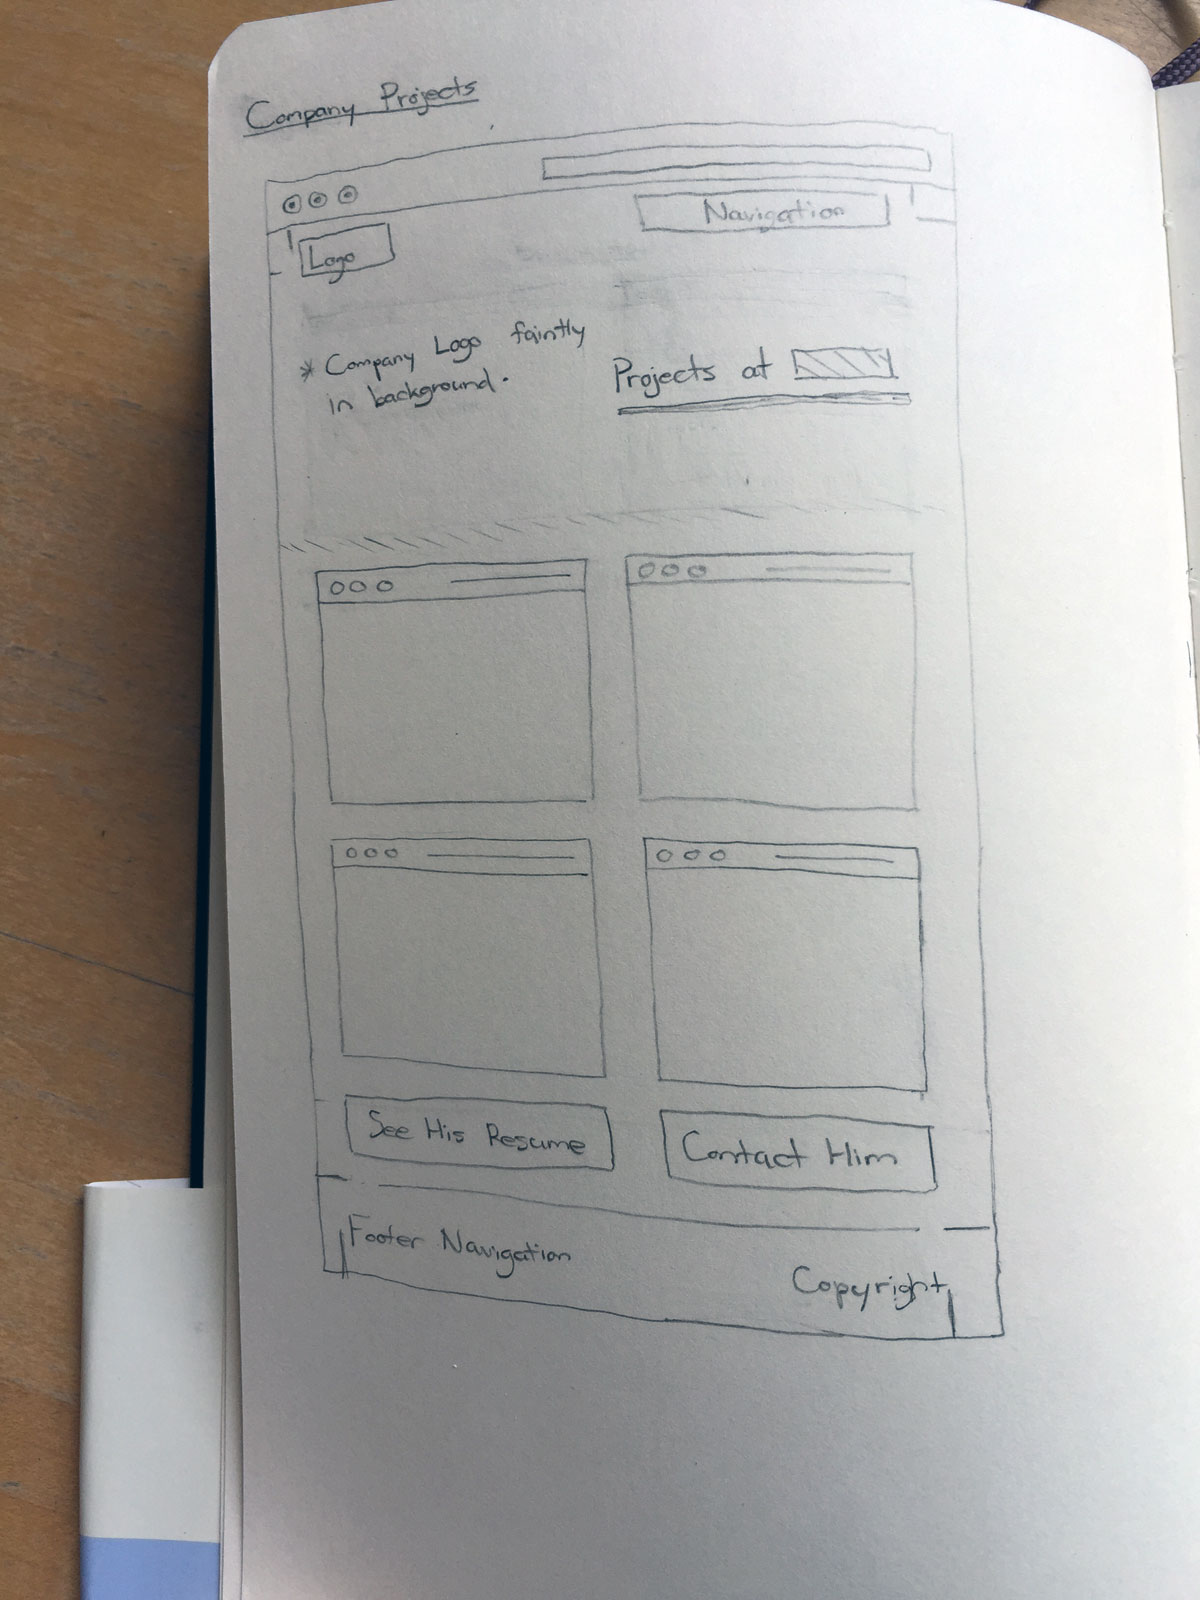 Company Projects
Navigation
Logo
* Company Logo faintly
in background.
Projects at
See His Resume
Contact Him
Footer Navigation
Copyright